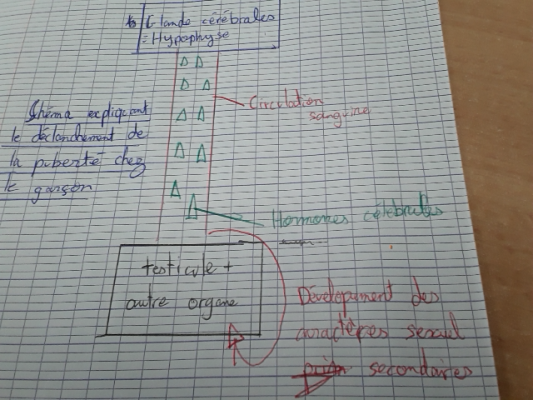 Glande cérébrales
= Hypophyse
Circulation
sanguine
Shéma expliquant
le déclanchement de
la puberté chez
le garçon
Hormones célébrales
testicule +
autre organe
Développement des
caractères sexuel
secondaires